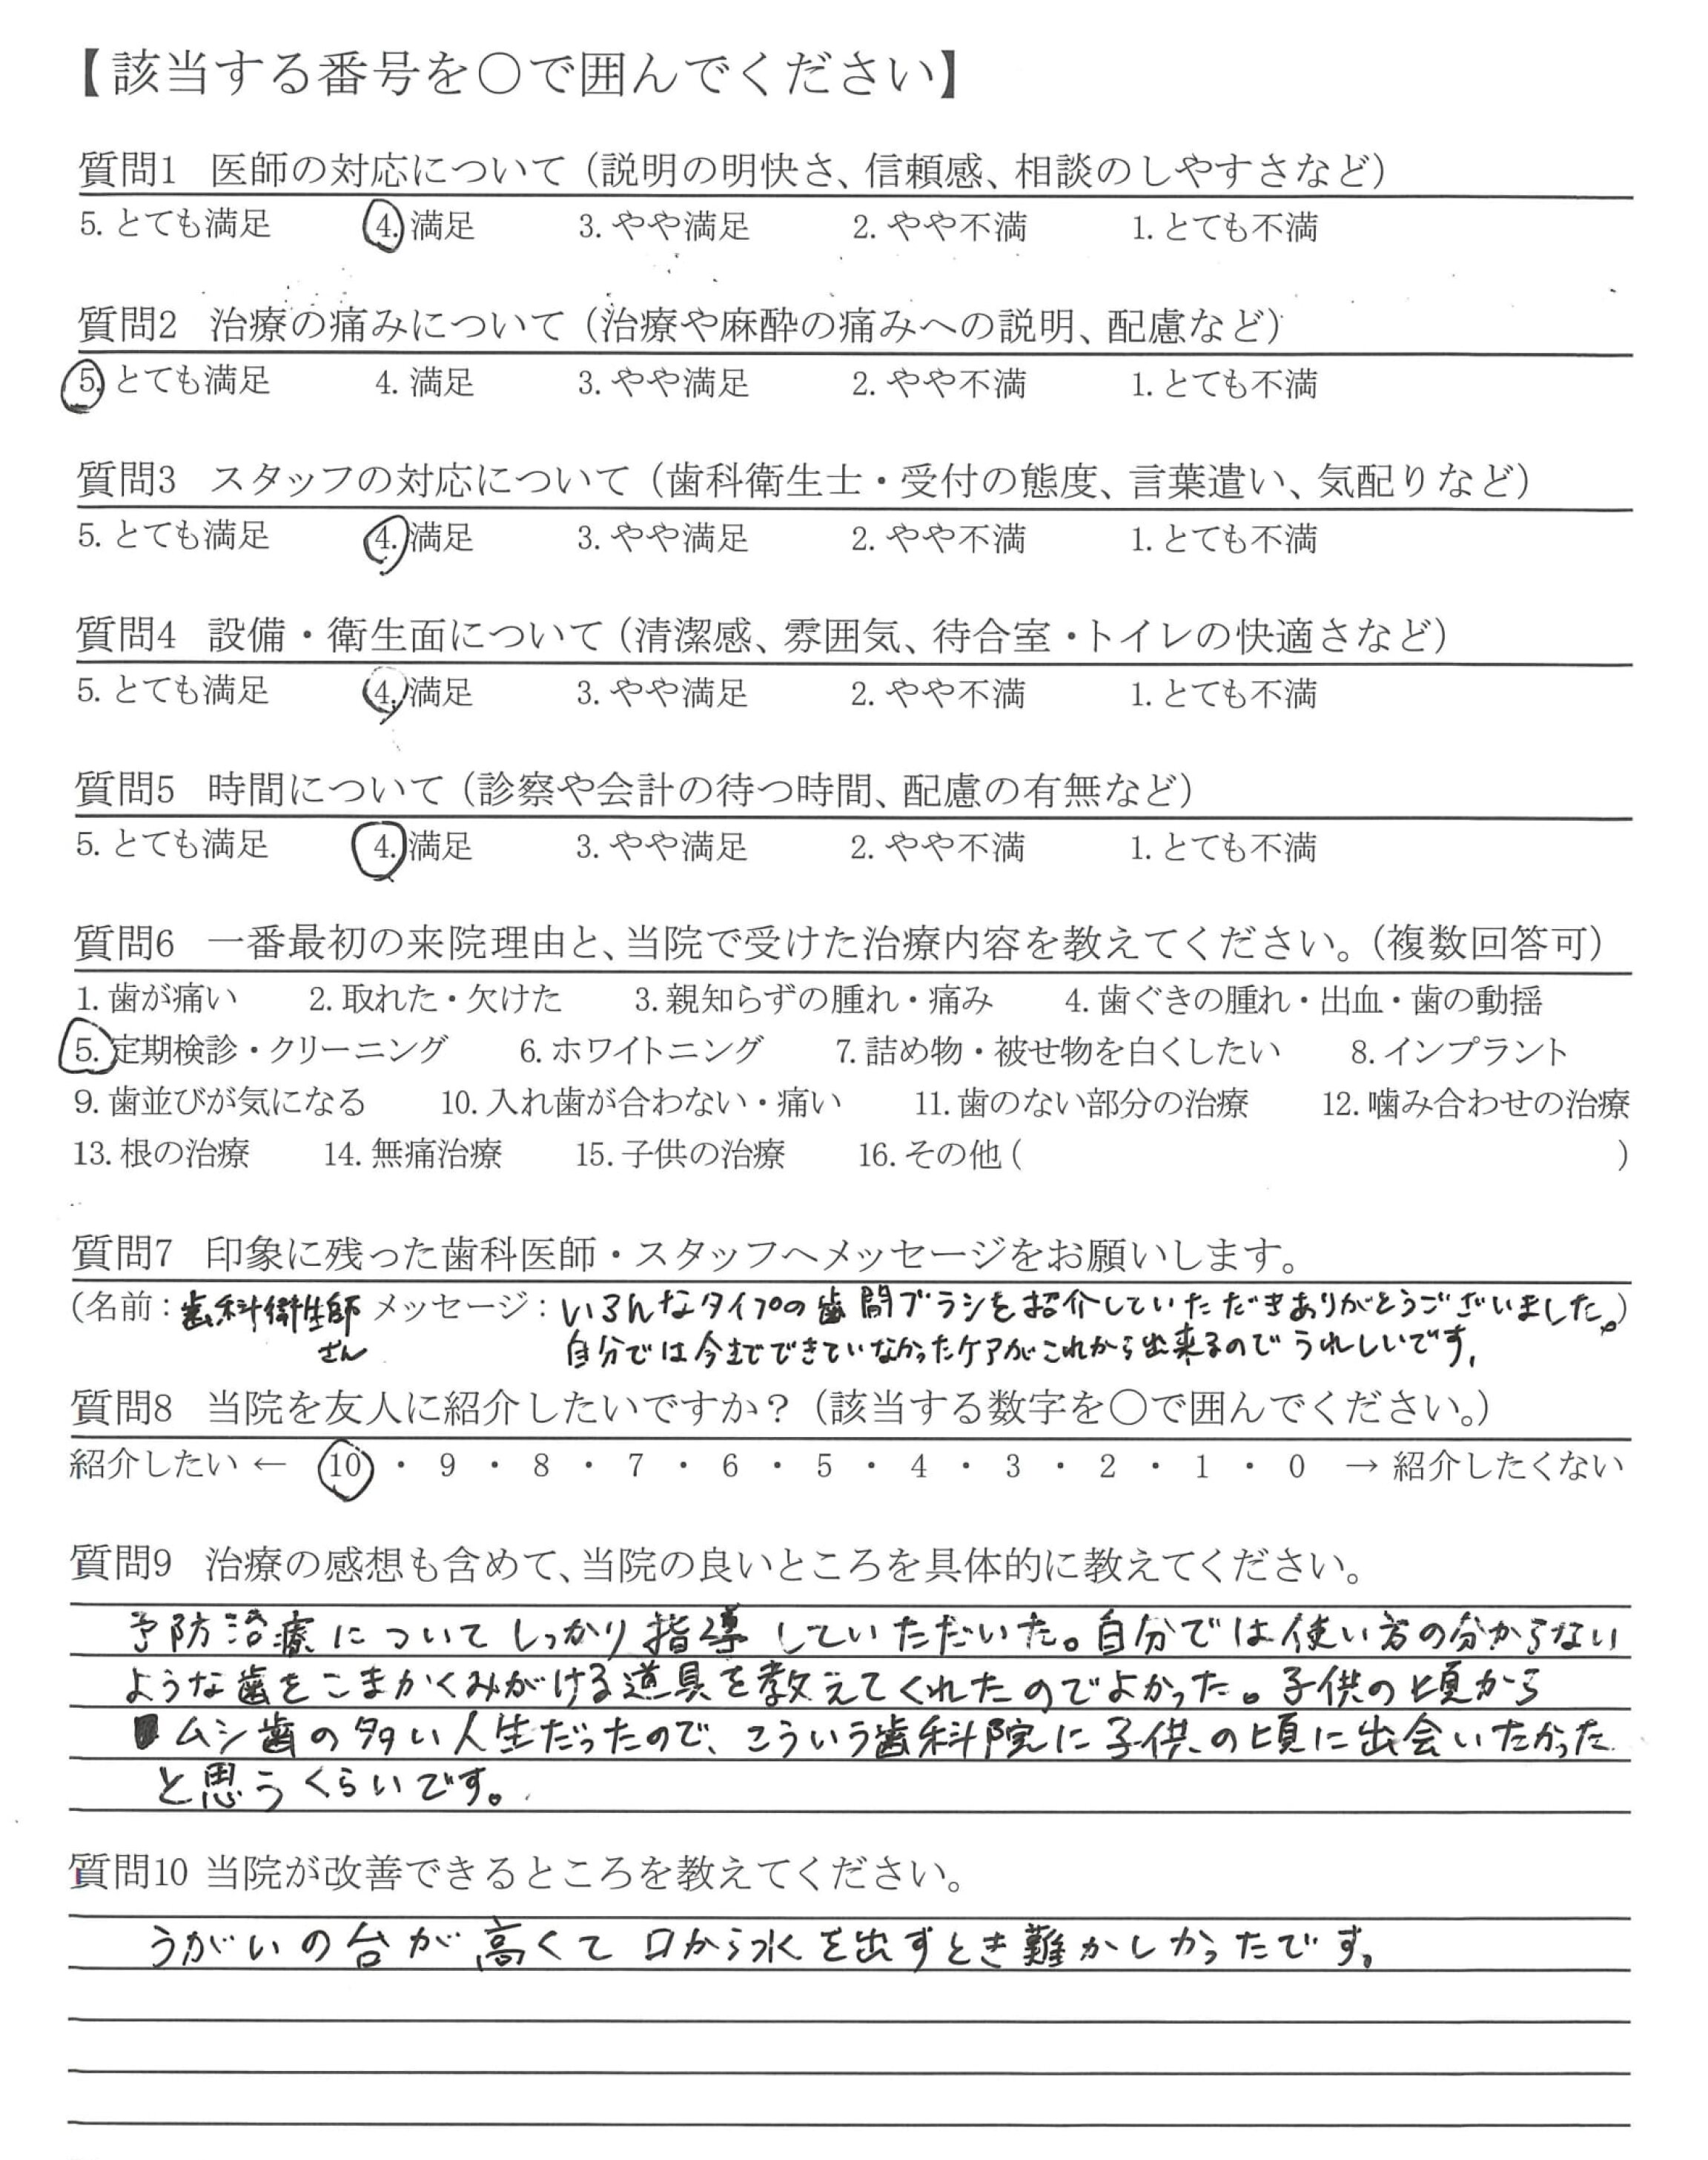 【該当する番号を〇で囲んでください】
質問1 医師の対応について（説明の明快さ、信頼感、相談のしやすさなど）
5. とても満足 4. 満足 3. やや満足 2. やや不満 1. とても不満
質問2 治療の痛みについて（治療や麻酔の痛みへの説明、配慮など）
5. とても満足 4. 満足 3. やや満足 2. やや不満 1. とても不満
質問3 スタッフの対応について（歯科衛生士・受付の態度、言葉遣い、気配りなど）
5. とても満足 4. 満足 3. やや満足 2. やや不満 1. とても不満
質問4 設備・衛生面について（清潔感、雰囲気、待合室・トイレの快適さなど）
5. とても満足 4. 満足 3. やや満足 2. やや不満 1. とても不満
質問5 時間について（診察や会計の待つ時間、配慮の有無など）
5. とても満足 4. 満足 3. やや満足 2. やや不満 1. とても不満
質問6 一番最初の来院理由と、当院で受けた治療内容を教えてください。（複数回答可）
1. 歯が痛い 2. 取れた・欠けた 3. 親知らずの腫れ・痛み 4. 歯ぐきの腫れ・出血・歯の動揺
5. 定期検診・クリーニング 6. ホワイトニング 7. 詰め物・被せ物を白くしたい 8. インプラント
9. 歯並びが気になる 10. 入れ歯が合わない・痛い 11. 歯のない部分の治療 12. 噛み合わせの治療
13. 根の治療 14. 無痛治療 15. 子供の治療 16. その他 ( )
質問7 印象に残った歯科医師・スタッフへメッセージをお願いします。
（名前：歯科衛生師 メッセージ：いろんなタイプの歯間ブラシを招介していただきありがとうございました。）
さん 自分では今までできていなかったケアがこれから出来るのでうれしいです。
質問8 当院を友人に紹介したいですか？（該当する数字を〇で囲んでください。）
紹介したい ← 10 ・ 9 ・ 8 ・ 7 ・ 6 ・ 5 ・ 4 ・ 3 ・ 2 ・ 1 ・ 0 → 紹介したくない
質問9 治療の感想も含めて、当院の良いところを具体的に教えてください。
予防治療についてしっかり指導していただいた。自分では使い方の分からない
ような歯をこまかくみがける道具を教えてくれたのでよかった。子供の頃から
ムシ歯の多い人生だったので、こういう歯科院に子供の頃に出会いたかった
と思うくらいです。
質問10 当院が改善できるところを教えてください。
うがいの台が高くて口から水を出すとき難かしかったです。